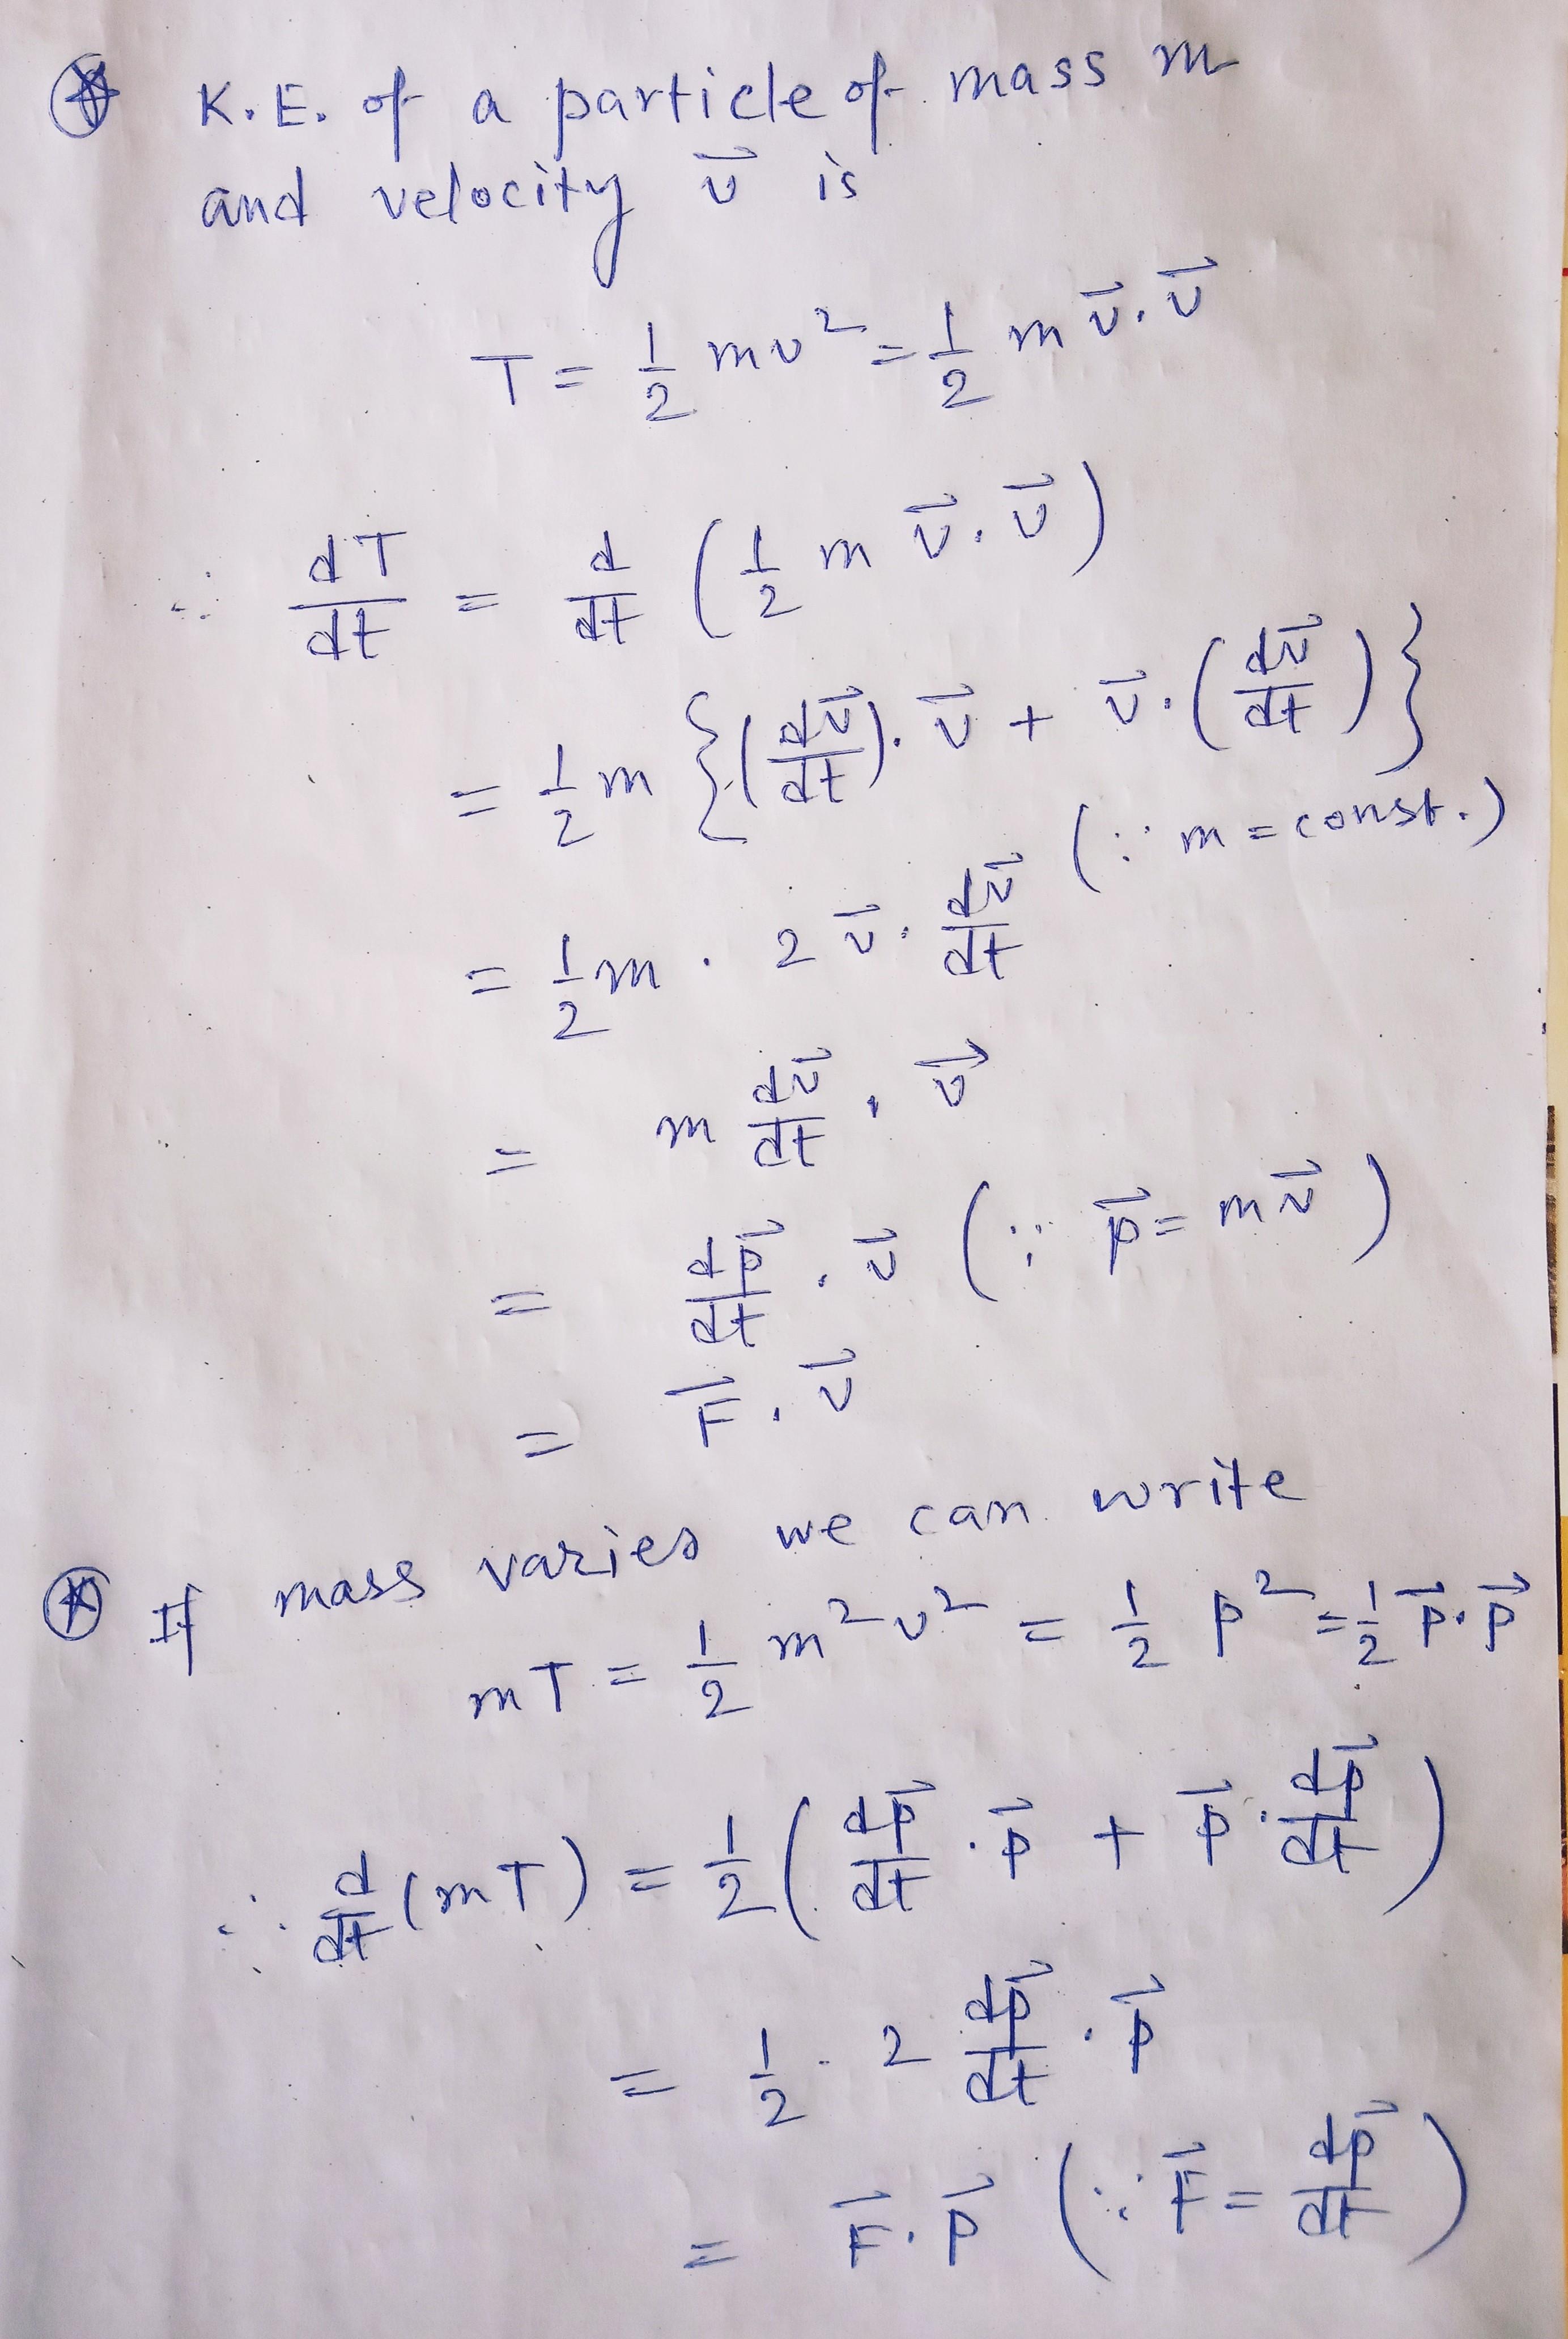 ⊛ K.E. of a particle of mass m
and velocity v⃗ is
T = 1/2 mv² = 1/2 m v⃗ . v⃗
∴ dT/dt = d/dt (1/2 m v⃗ . v⃗)
= 1/2 m {(dv⃗/dt) . v⃗ + v⃗ . (dv⃗/dt)}
(∵ m = const.)
= 1/2 m . 2 v⃗ . dv⃗/dt
= m dv⃗/dt . v⃗
= dp⃗/dt . v⃗ (∵ p⃗ = mv⃗)
= F⃗ . v⃗
⊛ If mass varies we can write
mT = 1/2 m²v² = 1/2 p² = 1/2 p⃗ . p⃗
∴ d/dt (mT) = 1/2 (dp⃗/dt . p⃗ + p⃗ . dp⃗/dt)
= 1/2 . 2 dp⃗/dt . p⃗
= F⃗ . p⃗ (∵ F⃗ = dp⃗/dt)